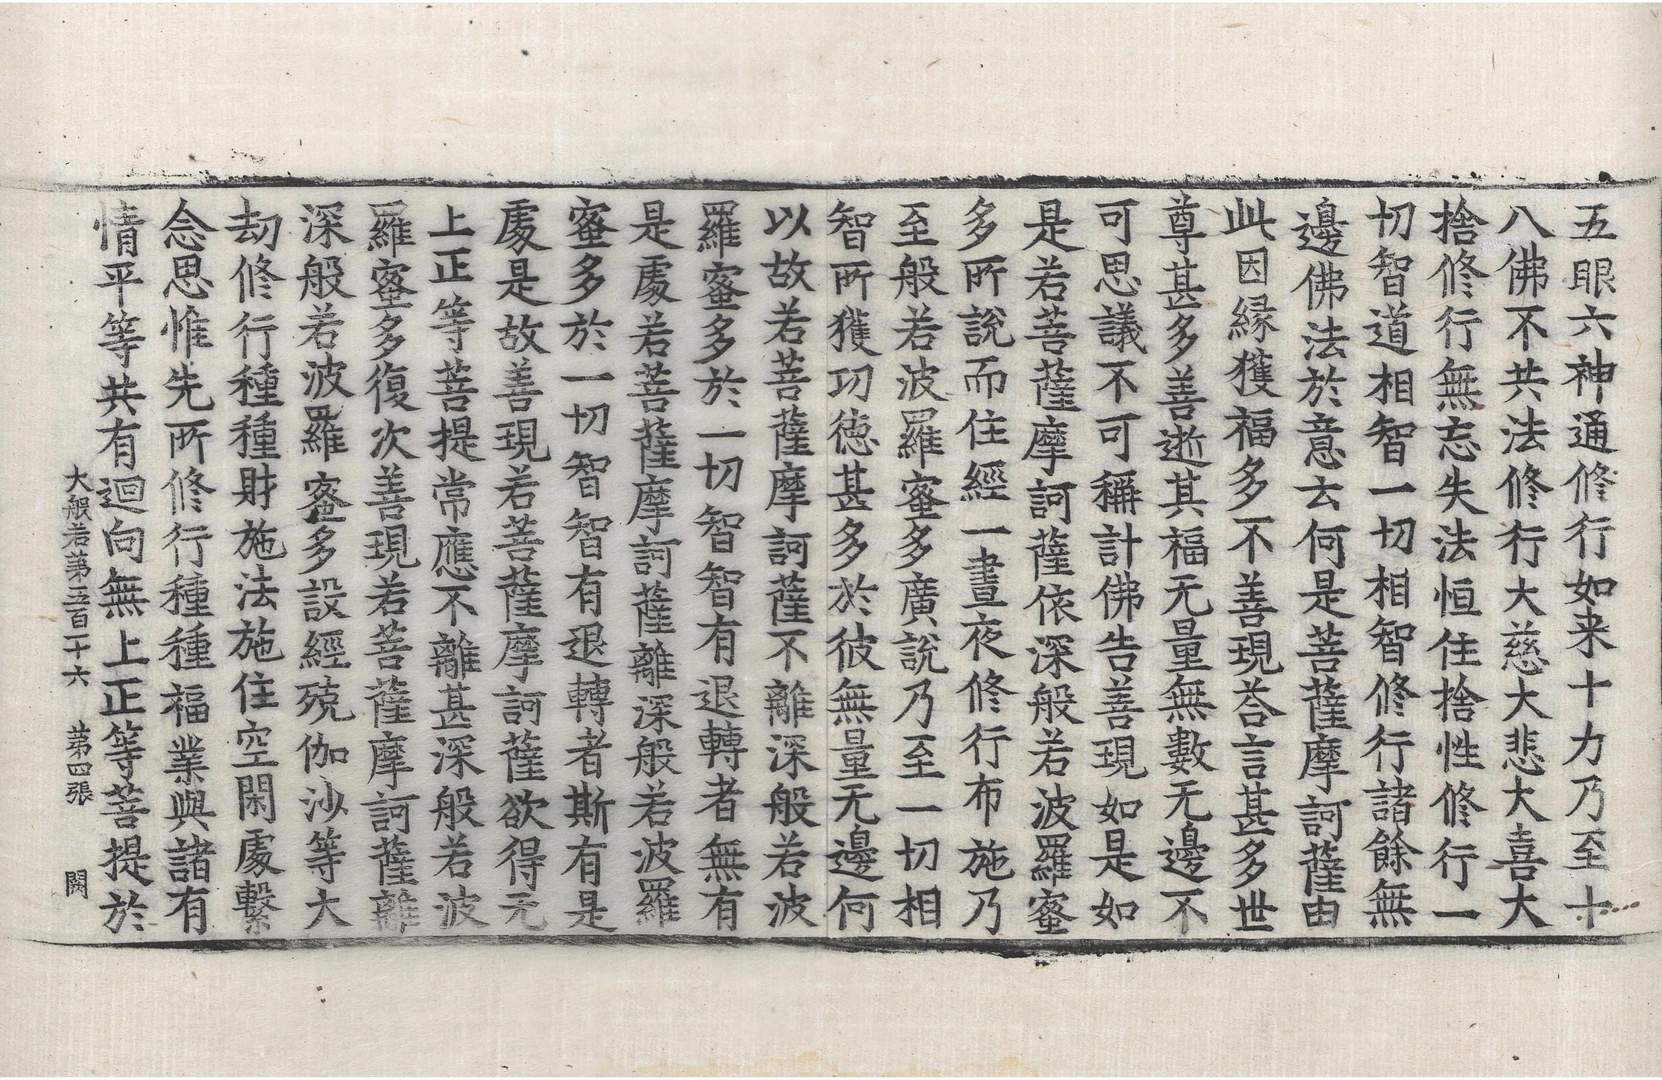 五眼六神通修行如来十力乃至十
八佛不共法修行大慈大悲大喜大
捨修行無忘失法恒住捨性修行一
切智道相智一切相智修行諸餘無
邊佛法於意云何是菩薩摩訶薩由
此因縁獲福多不善現荅言甚多世
尊甚多善逝其福无量無數无邊不
可思議不可稱計佛告善現如是如
是若菩薩摩訶薩依深般若波羅蜜
多所說而住經一晝夜修行布施乃
至般若波羅蜜多廣說乃至一切相
智所獲功徳甚多於彼無量无邊何
以故若菩薩摩訶薩不離深般若波
羅蜜多於一切智智有退轉者無有
是處若菩薩摩訶薩離深般若波羅
蜜多於一切智智有退轉者斯有是
處是故善現若菩薩摩訶薩欲得无
上正等菩提常應不離甚深般若波
羅蜜多復次善現若菩薩摩訶薩離
深般若波羅蜜多設經殑伽沙等大
劫修行種種財施法施住空閑處繫
念思惟先所修行種種福業與諸有
情平等共有迴向無上正等菩提於
大般若第五百二十六 第四張 闕